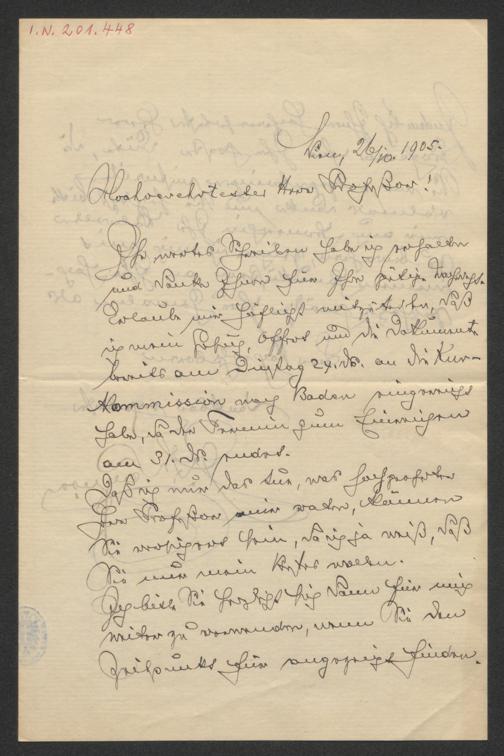 I.N. 201.448
Wien, 26/10. 1905.
Hochverehrtester Herr Professor!
Ihr wertes Schreiben habe ich erhalten
und danke Ihnen für Ihre gütige Nachricht.
Erlaube mir höflichst mitzuteilen, daß
ich mein Gesuch, Offert und die Dokumente
bereits am Dinstag 24. ds. an die Kur-
kommission nach Baden eingereicht
habe, da der Termin zum Einreichen
am 31. ds. endet.
Daß ich nur das tue, was hochverehrter
Herr Professor mir raten, können
Sie versichert sein, da ich ja weiß, daß
Sie nur mein Bestes wollen.
Ich bitte Sie herzlichst sich dann für mich
weiter zu verwenden, wenn Sie den
Zeitpunkt für angezeigt finden.